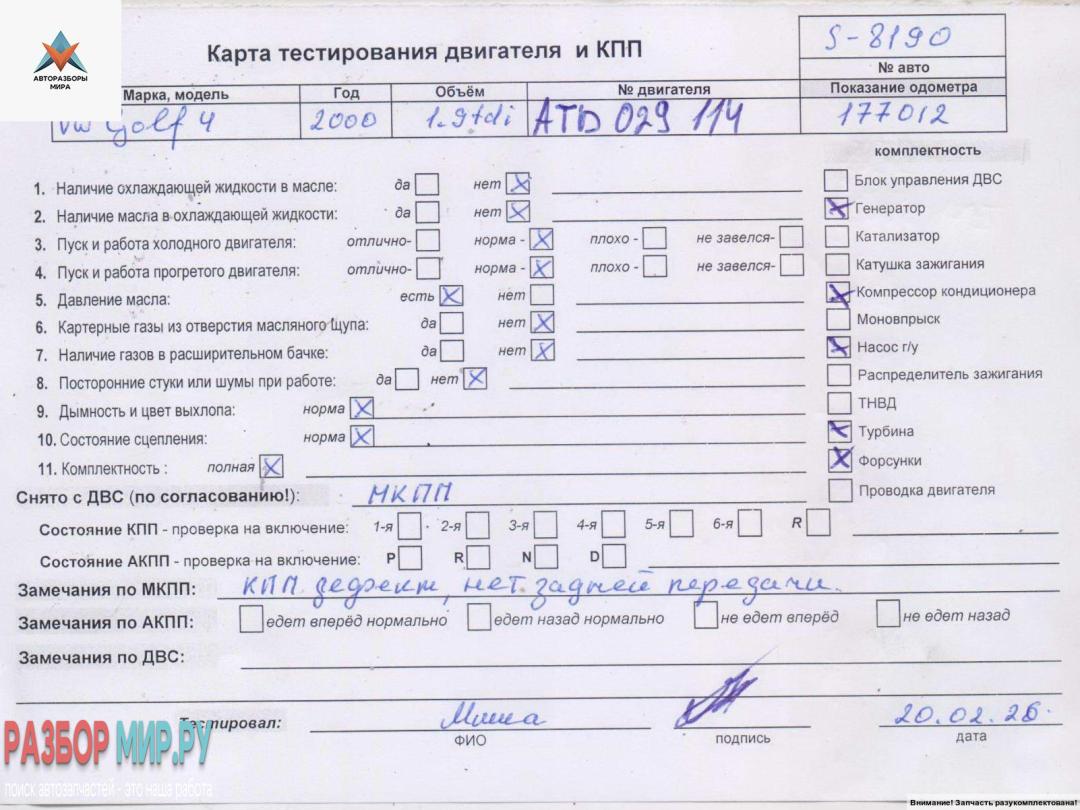 АВТОРАЗБОРЫ
МИРА
Карта тестирования двигателя и КПП
S-8190
№ авто
Марка, модель Год Объём № двигателя Показание одометра
VW Golf 4 2000 1.9tdi ATD 029 114 177012
комплектность
1. Наличие охлаждающей жидкости в масле: да нет
Блок управления ДВС
2. Наличие масла в охлаждающей жидкости: да нет
Генератор
3. Пуск и работа холодного двигателя: отлично- норма - плохо - не завелся-
Катализатор
4. Пуск и работа прогретого двигателя: отлично- норма - плохо - не завелся-
Катушка зажигания
5. Давление масла: есть нет
Компрессор кондиционера
6. Картерные газы из отверстия масляного щупа: да нет
Моновпрыск
7. Наличие газов в расширительном бачке: да нет
Насос г/у
8. Посторонние стуки или шумы при работе: да нет
Распределитель зажигания
9. Дымность и цвет выхлопа: норма
ТНВД
10. Состояние сцепления: норма
Турбина
11. Комплектность : полная
Форсунки
Снято с ДВС (по согласованию!): МКПП
Проводка двигателя
Состояние КПП - проверка на включение: 1-я 2-я 3-я 4-я 5-я 6-я R
Состояние АКПП - проверка на включение: P R N D
Замечания по МКПП: КПП дефект, нет задней передачи.
Замечания по АКПП: едет вперёд нормально едет назад нормально не едет вперёд не едет назад
Замечания по ДВС:
Тестировал: Миша 20.02.26.
ФИО подпись дата
РАЗБОР МИР.РУ
поиск автозапчастей - это наша работа
Внимание! Запчасть разукомплектована!